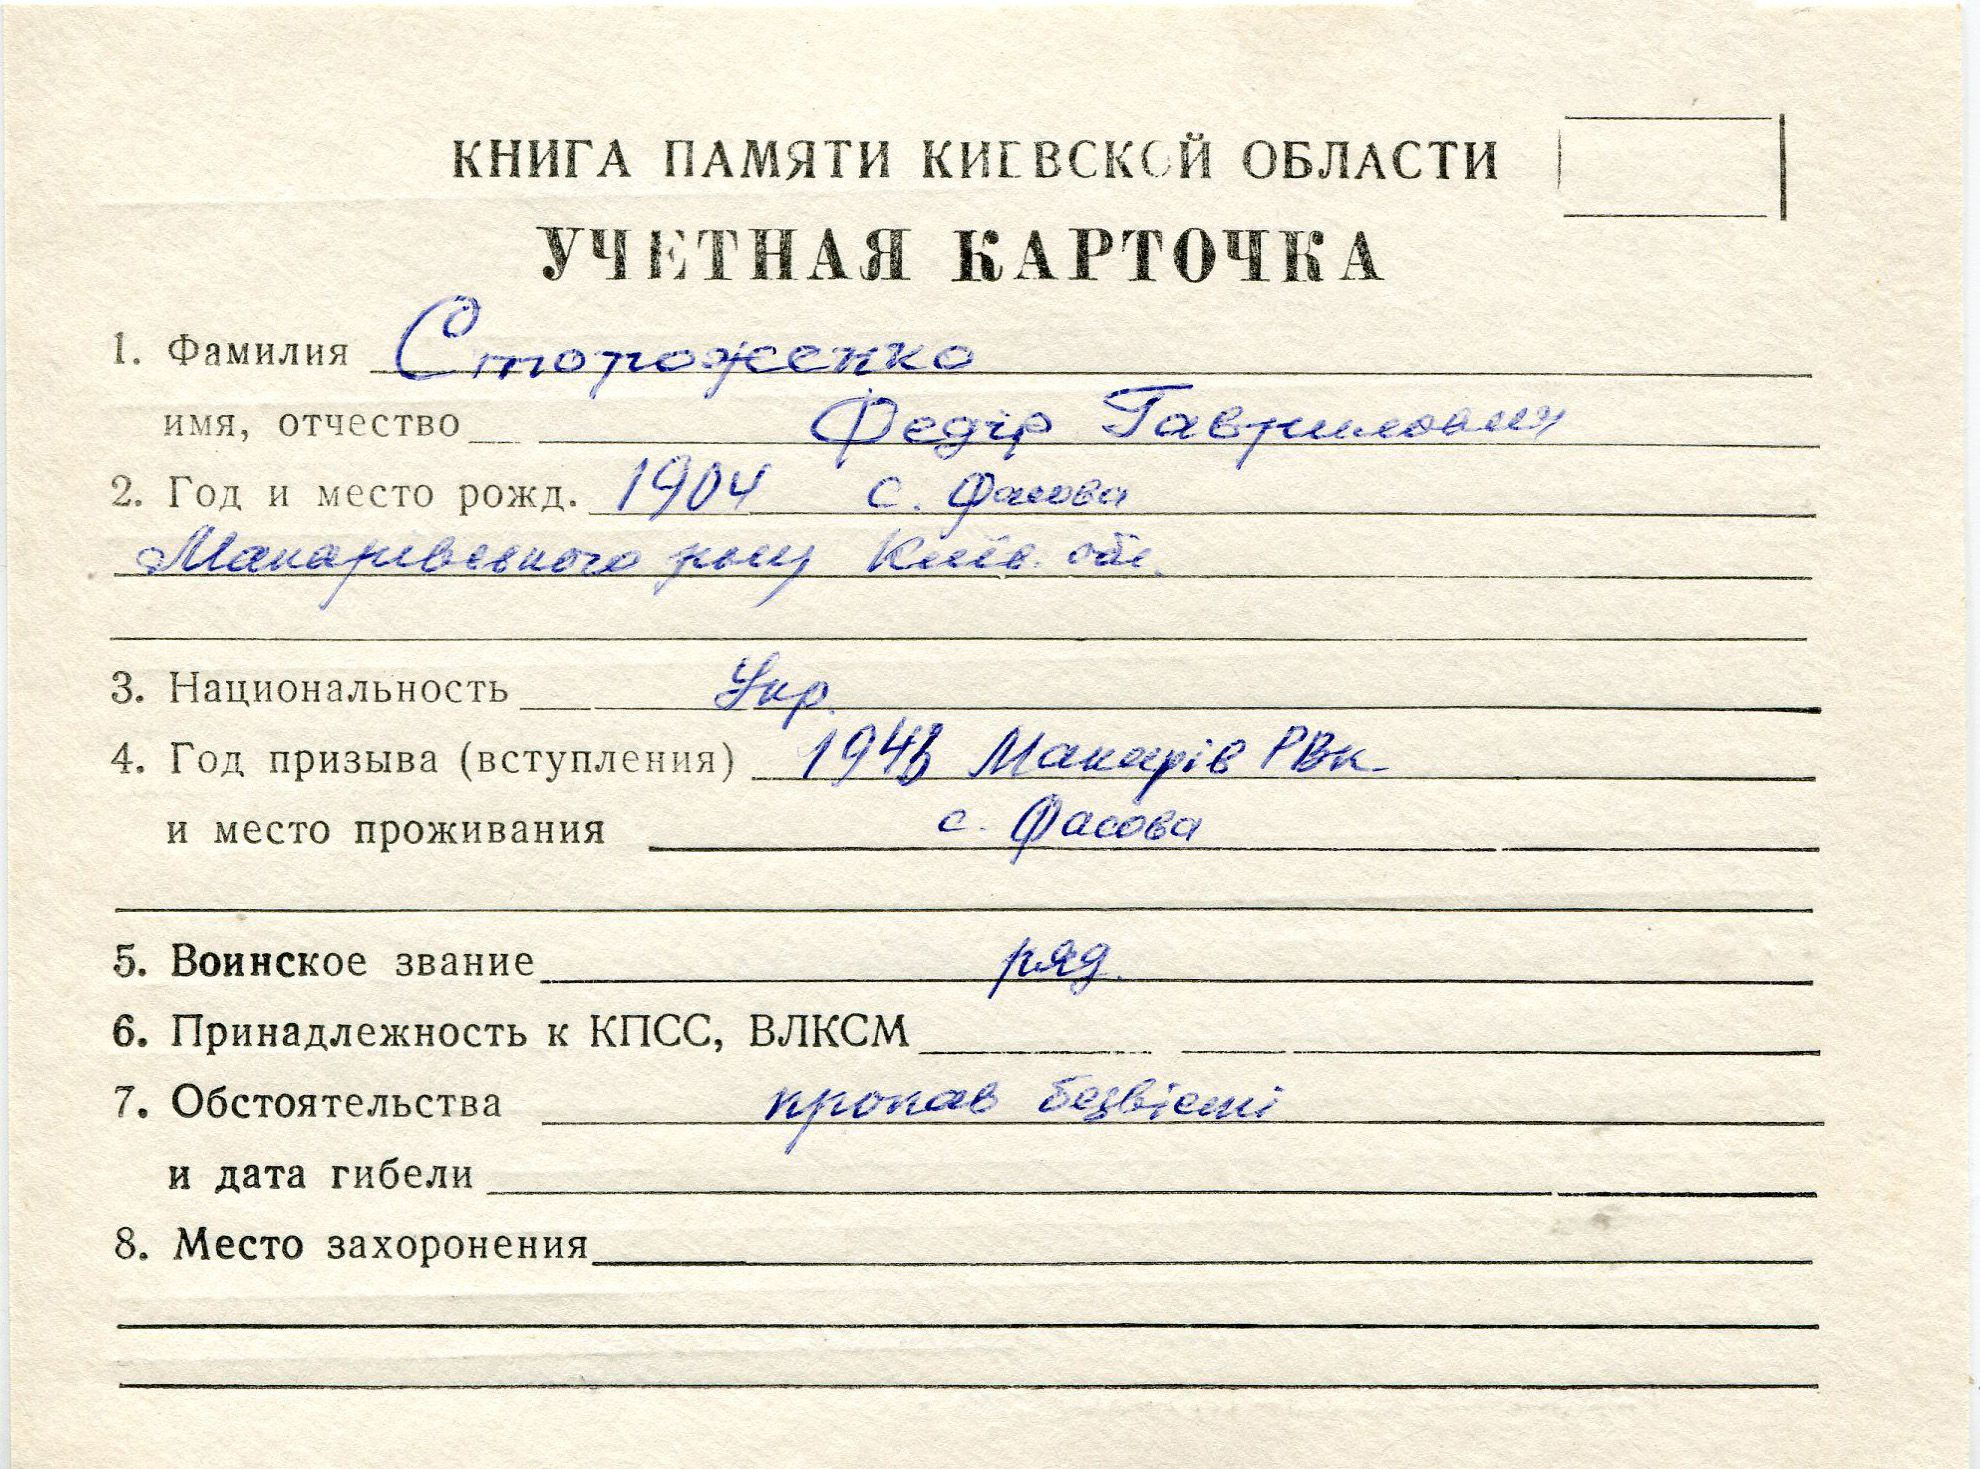 КНИГА ПАМЯТИ КИЕВСКОЙ ОБЛАСТИ
УЧЕТНАЯ КАРТОЧКА
1. Фамилия Стороженко
имя, отчество Федір Гаврилович
2. Год и место рожд. 1904 с. Фасова
Макарівського р-ну Київ. обл.
3. Национальность Укр.
4. Год призыва (вступления) Макарів РВк
и место проживания с. Фасова
5. Воинское звание ряд.
6. Принадлежность к КПСС, ВЛКСМ
7. Обстоятельства пропав безвісті
и дата гибели
8. Место захоронения